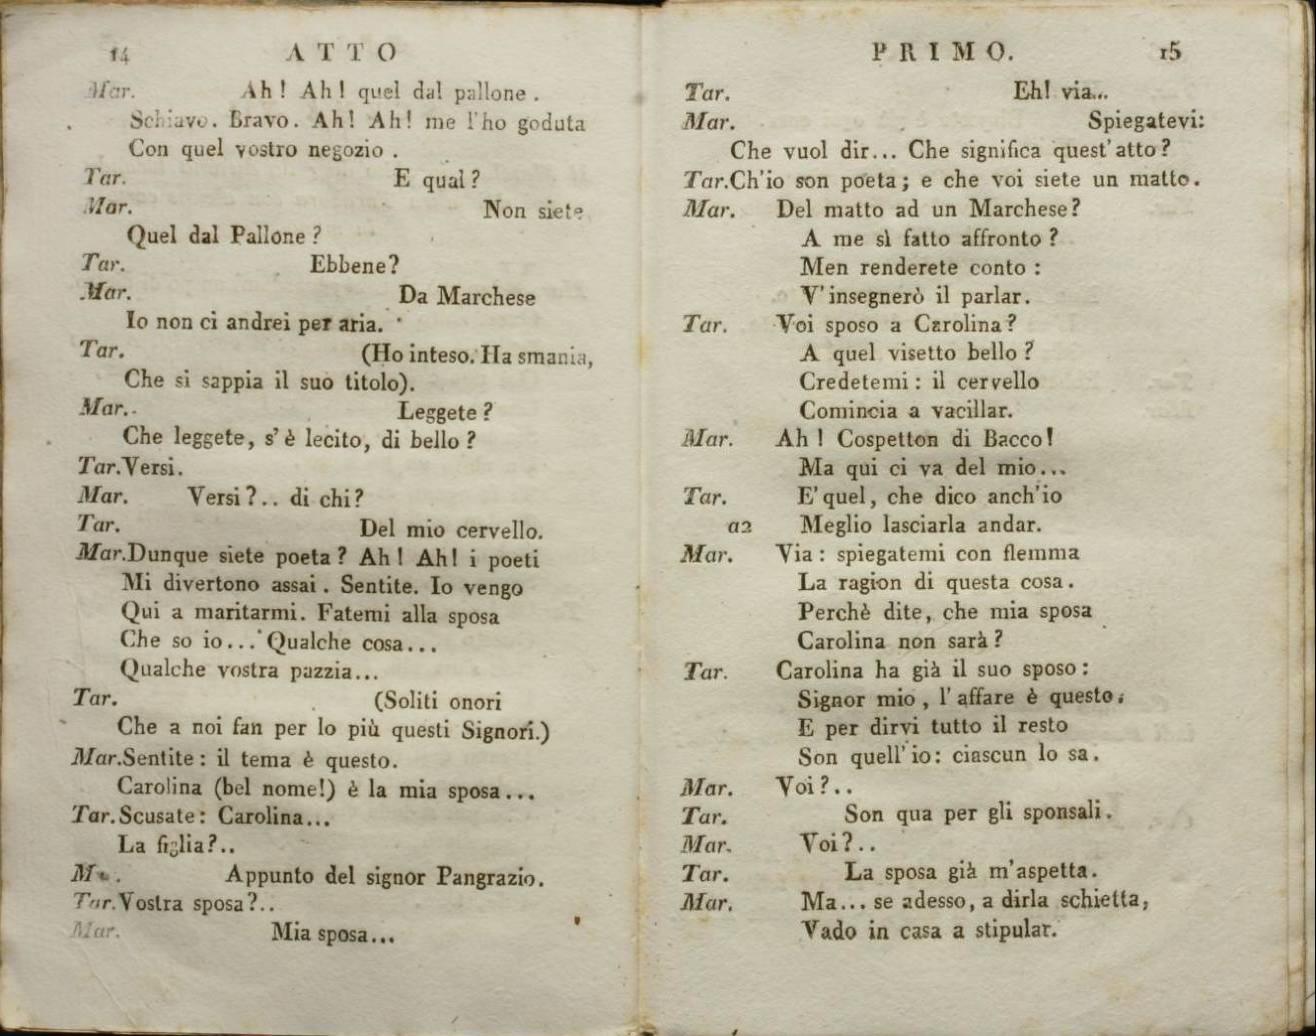 14 ATTO
Mar. Ah! Ah! quel dal pallone.
Schiavo. Bravo. Ah! Ah! me l'ho goduta
Con quel vostro negozio.
Tar. E qual?
Mar. Non siete
Quel dal Pallone?
Tar. Ebbene?
Mar. Da Marchese
Io non ci andrei per aria.
Tar. (Ho inteso. Ha smania,
Che si sappia il suo titolo).
Mar. Leggete?
Che leggete, s'è lecito, di bello?
Tar. Versi.
Mar. Versi?.. di chi?
Tar. Del mio cervello.
Mar. Dunque siete poeta? Ah! Ah! i poeti
Mi divertono assai. Sentite. Io vengo
Qui a maritarmi. Fatemi alla sposa
Che so io... Qualche cosa...
Qualche vostra pazzia...
Tar. (Soliti onori
Che a noi fan per lo più questi Signori.)
Mar. Sentite: il tema è questo.
Carolina (bel nome!) è la mia sposa...
Tar. Scusate: Carolina...
La figlia?..
Mar. Appunto del signor Pangrazio.
Tar. Vostra sposa?..
Mar. Mia sposa...
PRIMO. 15
Tar. Eh! via...
Mar. Spiegatevi:
Che vuol dir... Che significa quest'atto?
Tar. Ch'io son poeta; e che voi siete un matto.
Mar. Del matto ad un Marchese?
A me sì fatto affronto?
Men renderete conto:
V'insegnerò il parlar.
Tar. Voi sposo a Carolina?
A quel visetto bello?
Credetemi: il cervello
Comincia a vacillar.
Mar. Ah! Cospetton di Bacco!
Ma qui ci va del mio...
Tar. E' quel, che dico anch'io
a2 Meglio lasciarla andar.
Mar. Via: spiegatemi con flemma
La ragion di questa cosa.
Perchè dite, che mia sposa
Carolina non sarà?
Tar. Carolina ha già il suo sposo:
Signor mio, l'affare è questo;
E per dirvi tutto il resto
Son quell'io: ciascun lo sa.
Mar. Voi?..
Tar. Son qua per gli sponsali.
Mar. Voi?..
Tar. La sposa già m'aspetta.
Mar. Ma... se adesso, a dirla schietta,
Vado in casa a stipular.